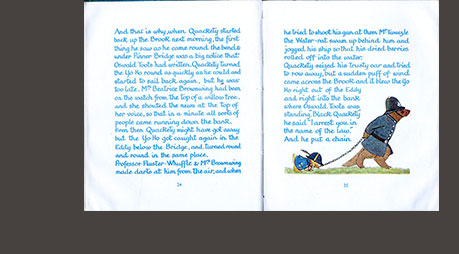 And that is why, when Quackety started
back up the Brook next morning, the first
thing he saw as he came round the bends
under Pisner Bridge was a big notice that
Oswald Toots had written. Quackety turned
the Yo Ho round as quickly as he could and
started to sail back again, but he was
too late. Mrs Beatrice Brownswing had been
on the watch from the top of a willow tree,
and she shouted the news at the top of
her voice, so that in a minute all sorts of
people came running down the bank.
Even then Quackety might have got away
but the Yo Ho got caught again in the
Eddy below the Bridge, and turned round
and round in the same place.
Professor Fluster-Whuffle & Mrs Brownswing
made darts at him from the air, and when
34
he tried to shoot his gun at them Mr Tuwyle
the Water-rat swum up behind him and
jogged his ship so that his dried berries
rolled off into the water.
Quackety seized his trusty oar and tried
to row away, but a sudden puff of wind
came across the Brook and it blew the Yo
Ho right out of the Eddy
and right into the bank
where Oswald Toots was
standing. "Black Quackety"
he said "I arrest you in
the name of the law."
And he put a chain
35